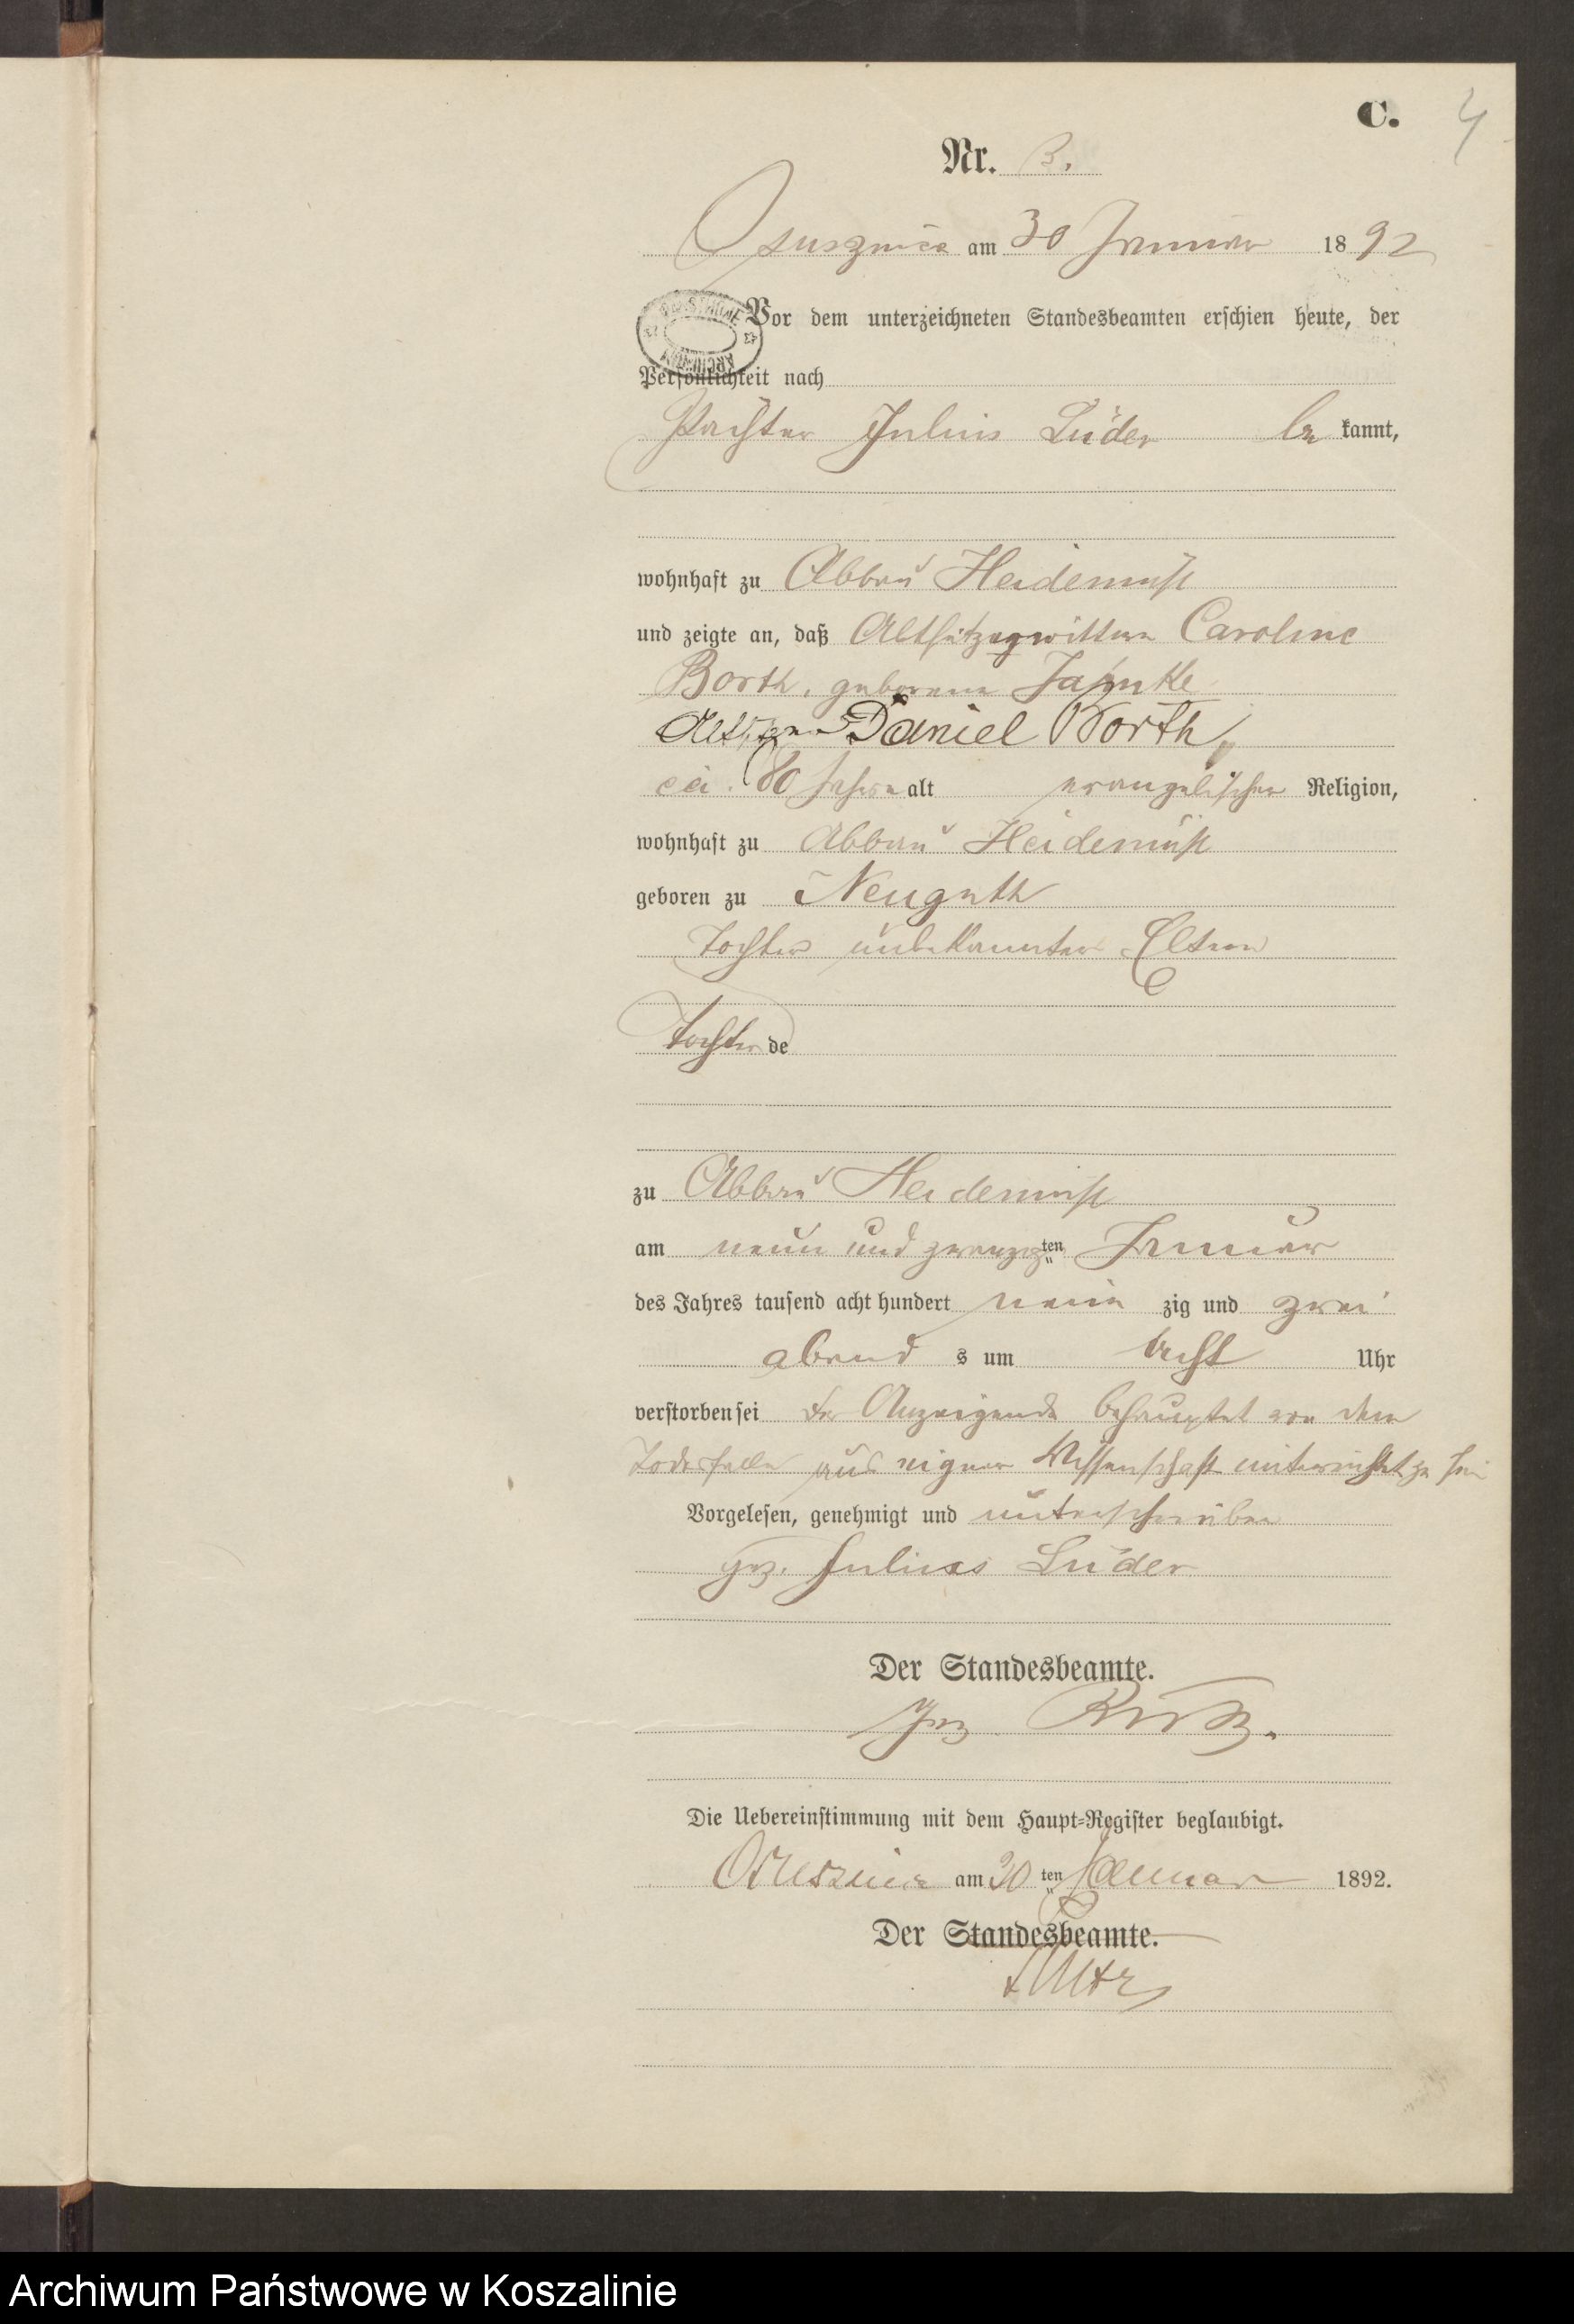 C. 4
Nr. 3.
Osusznica am 30 Januar 1892
Vor dem unterzeichneten Standesbeamten erschien heute, der
Persönlichkeit nach
Pächter Julius Lüder be kannt,
wohnhaft zu Abbau Heidemühl
und zeigte an, daß Altsitzerwittwe Caroline
Borth, geborene
Daniel Borth,
80 Jahre alt evangelischer Religion,
wohnhaft zu Abbau Heidemühl
geboren zu Neuguth
Tochter unbekannter Eltern
Tochter de
zu Abbau Heidemühl
am neun und zwanzigten Januar
des Jahres tausend acht hundert neun zig und zwei
abend s um acht Uhr
verstorben sei der Anzeigende behauptet von dem
Todesfalle aus eigner Wissenschaft unterrichtet zu sein
Vorgelesen, genehmigt und unterschrieben
gez. Julius Lüder
Der Standesbeamte.
gez.
Die Uebereinstimmung mit dem Haupt-Register beglaubigt.
am 30 ten Januar 1892.
Der Standesbeamte.
Archiwum Państwowe w Koszalinie